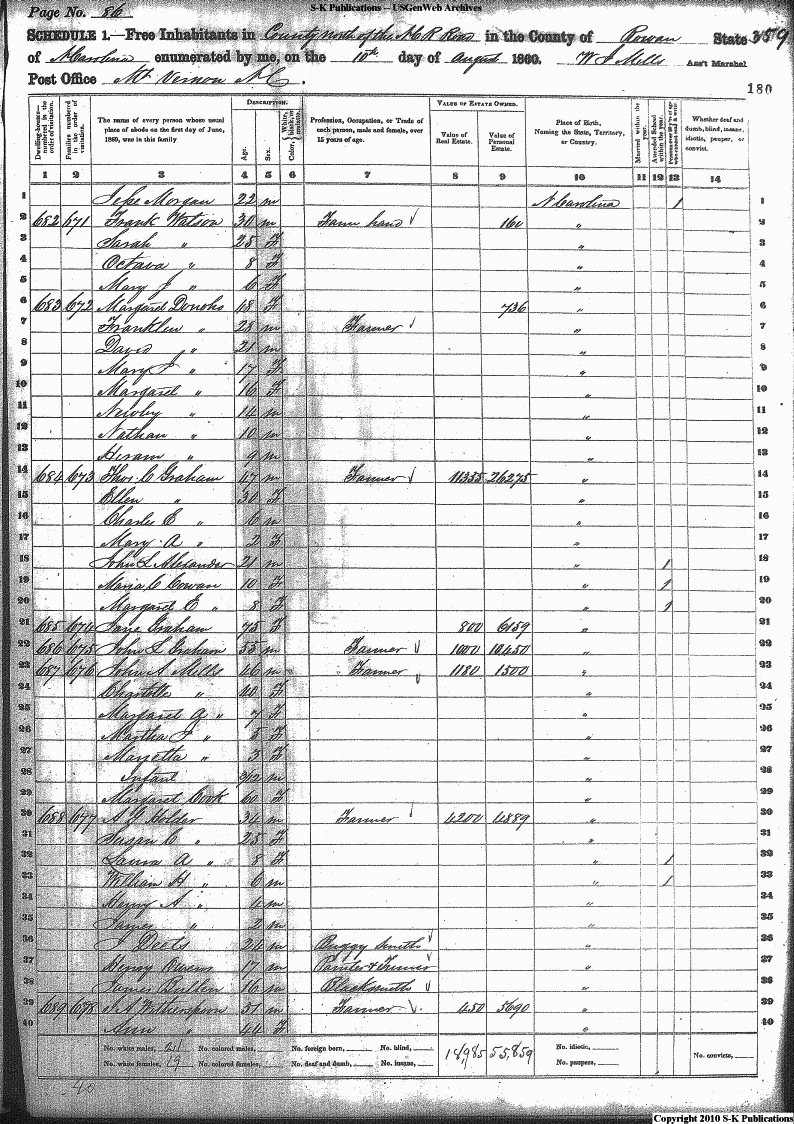 S-K Publications -- USGenWeb Archives
Page No. 86
SCHEDULE 1.—Free Inhabitants in County north of the N.C. R Road in the County of Rowan State 359
of N Carolina enumerated by me, on the 10th day of August 1860. W J Mills Ass't Marshal
Post Office Mt. Vernon N.C.
180
Dwelling-houses— numbered in the order of visitation.
Families numbered in the order of visitation.
The name of every person whose usual place of abode on the first day of June, 1860, was in this family
DESCRIPTION.
Age.
Sex.
Color, White, black, or mulatto.
Profession, Occupation, or Trade of each person, male and female, over 15 years of age.
VALUE OF ESTATE OWNED.
Value of Real Estate.
Value of Personal Estate.
Place of Birth, Naming the State, Territory, or Country.
Married within the year.
Attended School within the year.
Whether deaf and dumb, blind, insane, idiotic, pauper, or convict.
1 2 3 4 5 6 7 8 9 10 11 12 13 14
1 Morgan 22 m N Carolina 1 1
2 682 671 Frank Watson 30 m Farm hand 160 " 2
3 Sarah " 25 F " 3
4 Octava " 8 F " 4
5 Mary J " 6 F " 5
6 683 672 Margaret 48 F 736 " 6
7 Franklen " 28 m Farmer " 7
8 David " 21 m " 8
9 Mary J " 17 F " 9
10 Margaret " 16 F " 10
11 Newby " 14 m " 11
12 Nathan " 10 m " 12
13 Hiram " 9 m " 13
14 684 673 Thos. C Graham 47 m Farmer 11355 26275 " 14
15 Ellen " 30 F " 15
16 Charles E " 6 m " 16
17 Mary A " 2 F " 17
18 John L Alexander 21 m " 1 18
19 Maria C Cowan 10 F " 1 19
20 Margaret E " 8 F " 1 20
21 685 674 Jane Graham 75 F 800 6159 21
22 686 675 John L Graham 55 m Farmer 1000 10450 " 22
23 687 676 John A Mills 46 m Farmer 1180 1500 " 23
24 Charlotte " 40 F " 24
25 Margaret A " 7 F " 25
26 Martha J " 5 F " 26
27 Marietta " 3 F " 27
28 Infant m " 28
29 Margaret Cook 60 F " 29
30 688 677 Holder 34 m Farmer 4200 4889 " 30
31 Susan C " 25 F " 31
32 Laura A " 8 F " 1 32
33 William H " 6 m " 1 33
34 Henry A " 4 m " 34
35 James " 2 m " 35
36 J Deets 24 m Buggy Smith " 36
37 Henry Owens 17 m Painter & Trimer " 37
38 James 16 m Blacksmith " 38
39 689 678 Witherspoon 51 m Farmer 450 5690 " 39
40 Ann " 44 F " 40
No. white males, 21 No. colored males, No. foreign born, No. blind, 18985 55,859 No. idiotic, No. convicts,
No. white females, 19 No. colored females, No. deaf and dumb, No. insane, No. paupers,
40
Copyright 2010 S-K Publications